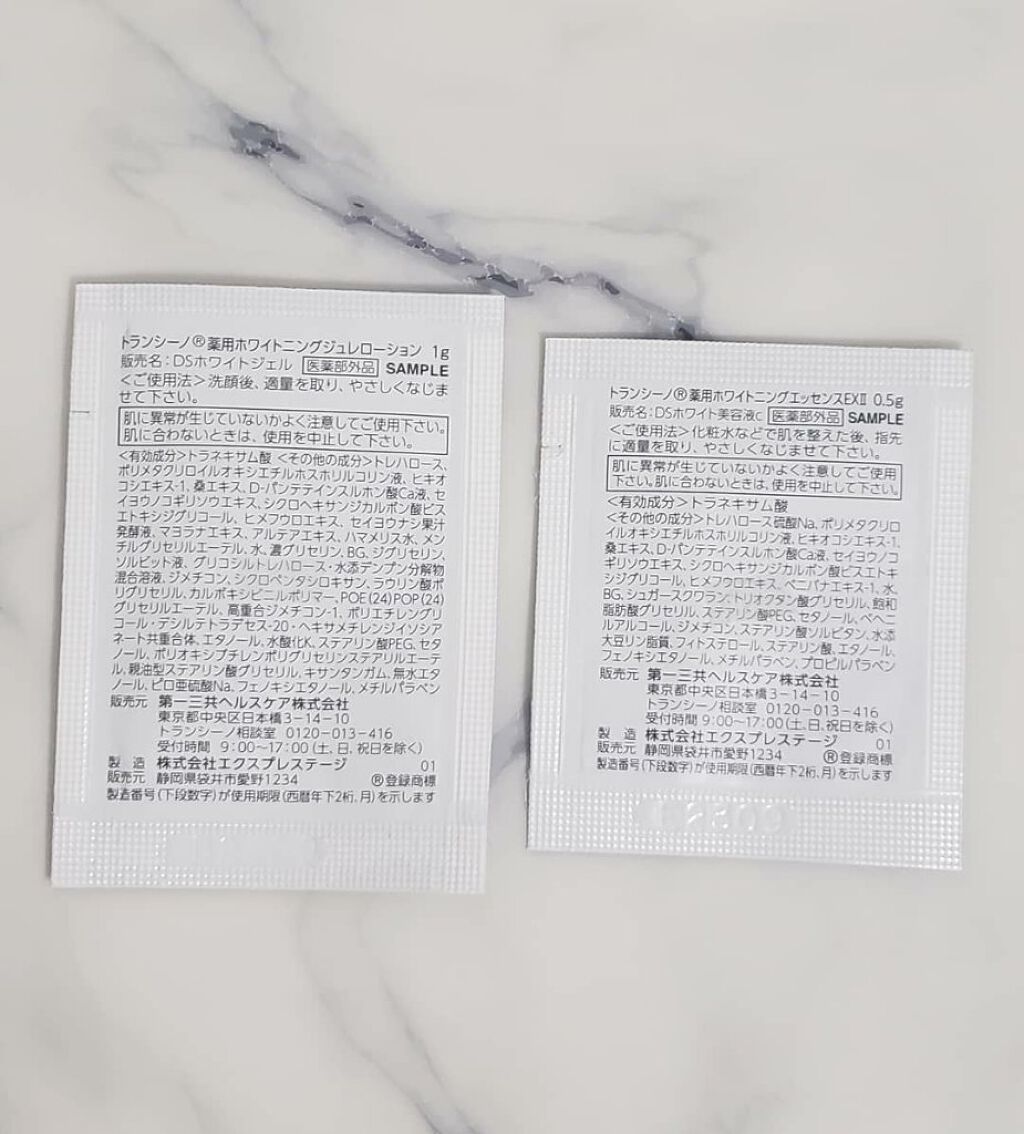 トランシーノ®薬用ホワイトニングジュレローション 1g
販売名：DSホワイトジェル 医薬部外品 SAMPLE
＜ご使用法＞洗顔後、適量を取り、やさしくなじま
せて下さい。
肌に異常が生じていないかよく注意してご使用下さい。
肌に合わないときは、使用を中止して下さい。
＜有効成分＞トラネキサム酸 ＜その他の成分＞トレハロース、
ポリメタクリロイルオキシエチルホスホリルコリン液、ヒキオ
コシエキス-1、桑エキス、D-パンテテインスルホン酸Ca液、セ
イヨウノコギリソウエキス、シクロヘキサンジカルボン酸ビス
エトキシジグリコール、ヒメフウロエキス、セイヨウナシ果汁
発酵液、マヨラナエキス、アルテアエキス、ハマメリス水、メン
チルグリセリルエーテル、水、濃グリセリン、BG、ジグリセリン、
ソルビット液、グリコシルトレハロース・水添デンプン分解物
混合溶液、ジメチコン、シクロペンタシロキサン、ラウリン酸ポ
リグリセリル、カルボキシビニルポリマー、POE(24)POP(24)
グリセリルエーテル、高重合ジメチコン-1、ポリエチレングリ
コール・デシルテトラデセス-20・ヘキサメチレンジイソシア
ネート共重合体、エタノール、水酸化K、ステアリン酸PEG、セタ
ノール、ポリオキシブチレンポリグリセリンステアリルエーテ
ル、親油型ステアリン酸グリセリル、キサンタンガム、無水エタ
ノール、ピロ亜硫酸Na、フェノキシエタノール、メチルパラベン
販売元 第一三共ヘルスケア株式会社
東京都中央区日本橋3-14-10
トランシーノ相談室 0120-013-416
受付時間 9:00～17:00（土、日、祝日を除く）
製 造 株式会社エクスプレステージ 01
販売元 静岡県袋井市愛野1234 ®登録商標
製造番号（下段数字）が使用期限（西暦年下2桁、月）を示します
トランシーノ®薬用ホワイトニングエッセンスEXⅡ 0.5g
販売名：DSホワイト美容液c 医薬部外品 SAMPLE
＜ご使用法＞化粧水などで肌を整えた後、指先
に適量を取り、やさしくなじませて下さい。
肌に異常が生じていないかよく注意してご使用
下さい。肌に合わないときは、使用を中止して下さい。
＜有効成分＞トラネキサム酸
＜その他の成分＞トレハロース硫酸Na、ポリメタクリロ
イルオキシエチルホスホリルコリン液、ヒキオコシエキス-1、
桑エキス、D-パンテテインスルホン酸Ca液、セイヨウノコ
ギリソウエキス、シクロヘキサンジカルボン酸ビスエトキ
シジグリコール、ヒメフウロエキス、ベニバナエキス-1、水、
BG、シュガースクワラン、トリオクタン酸グリセリル、飽和
脂肪酸グリセリル、ステアリン酸PEG、セタノール、ベヘニ
ルアルコール、ジメチコン、ステアリン酸ソルビタン、水添
大豆リン脂質、フィトステロール、ステアリン酸、エタノール、
フェノキシエタノール、メチルパラベン、プロピルパラベン
販売元 第一三共ヘルスケア株式会社
東京都中央区日本橋3-14-10
トランシーノ相談室 0120-013-416
受付時間 9:00～17:00（土、日、祝日を除く）
製 造 株式会社エクスプレステージ 01
販売元 静岡県袋井市愛野1234 ®登録商標
製造番号（下段数字）が使用期限（西暦年下2桁、月）を示します